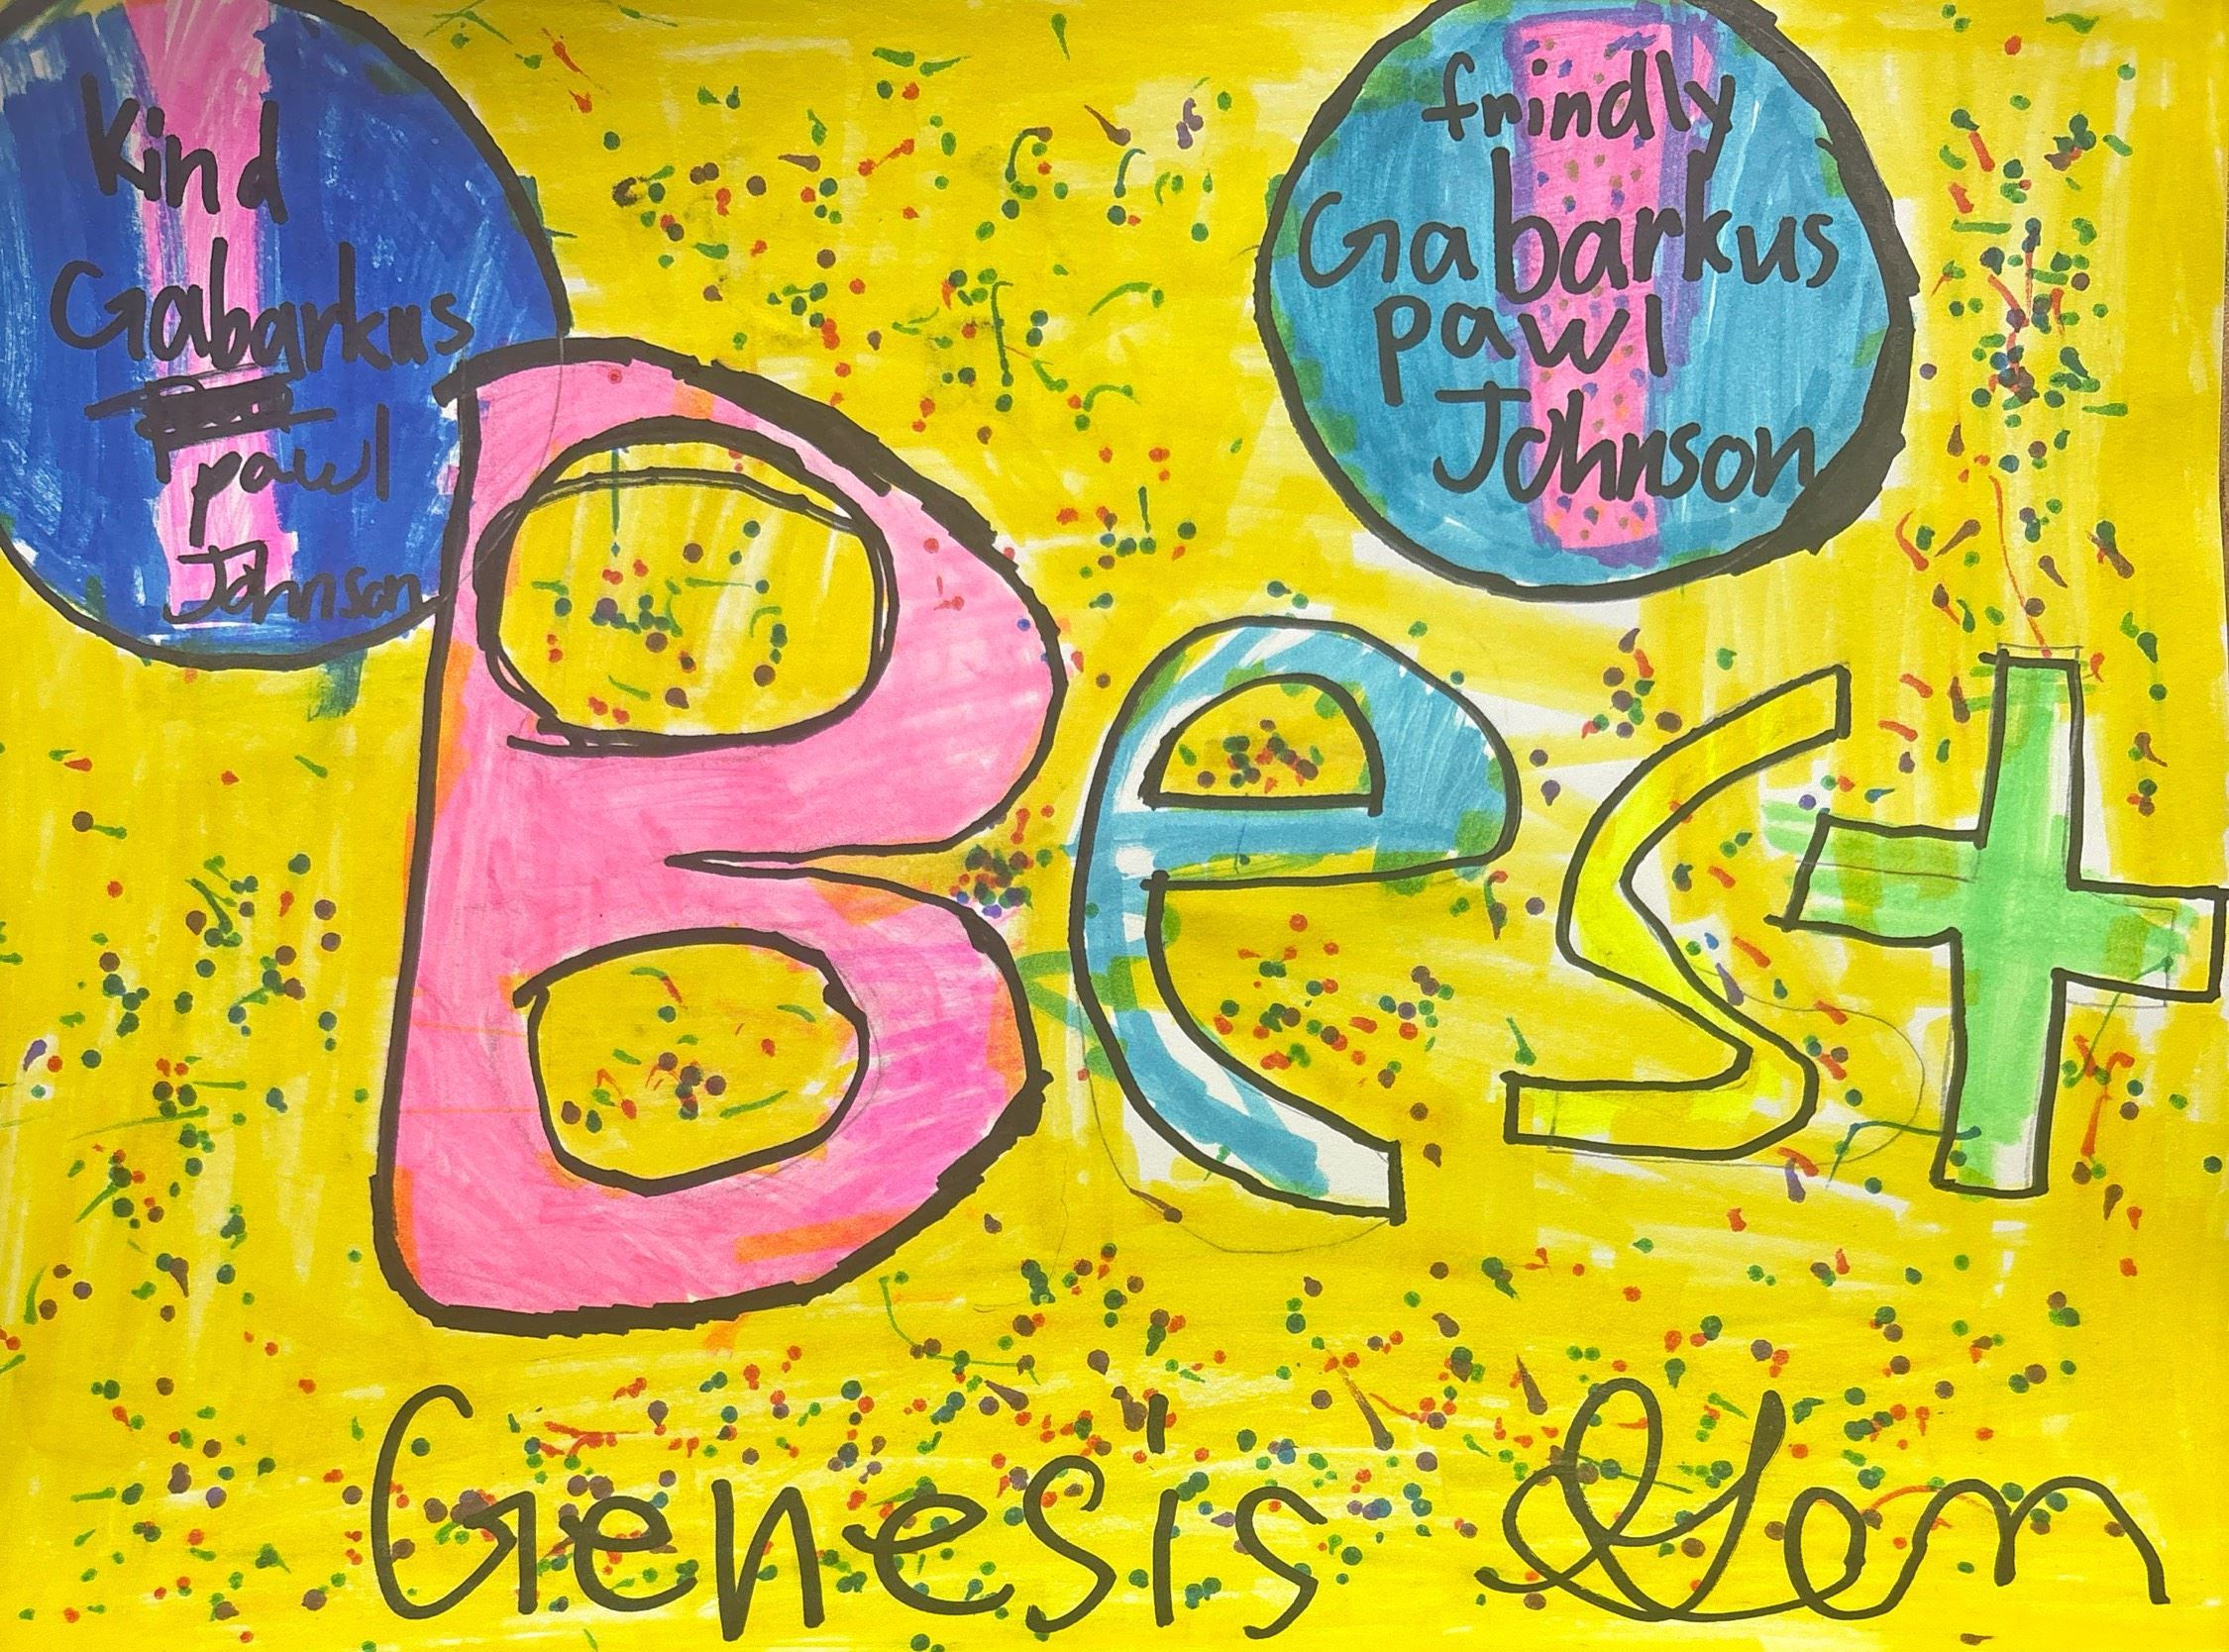 Kind
Gabarkus
pawl
Johnson
frindly
Gabarkus
pawl
Johnson
Best
Genesis